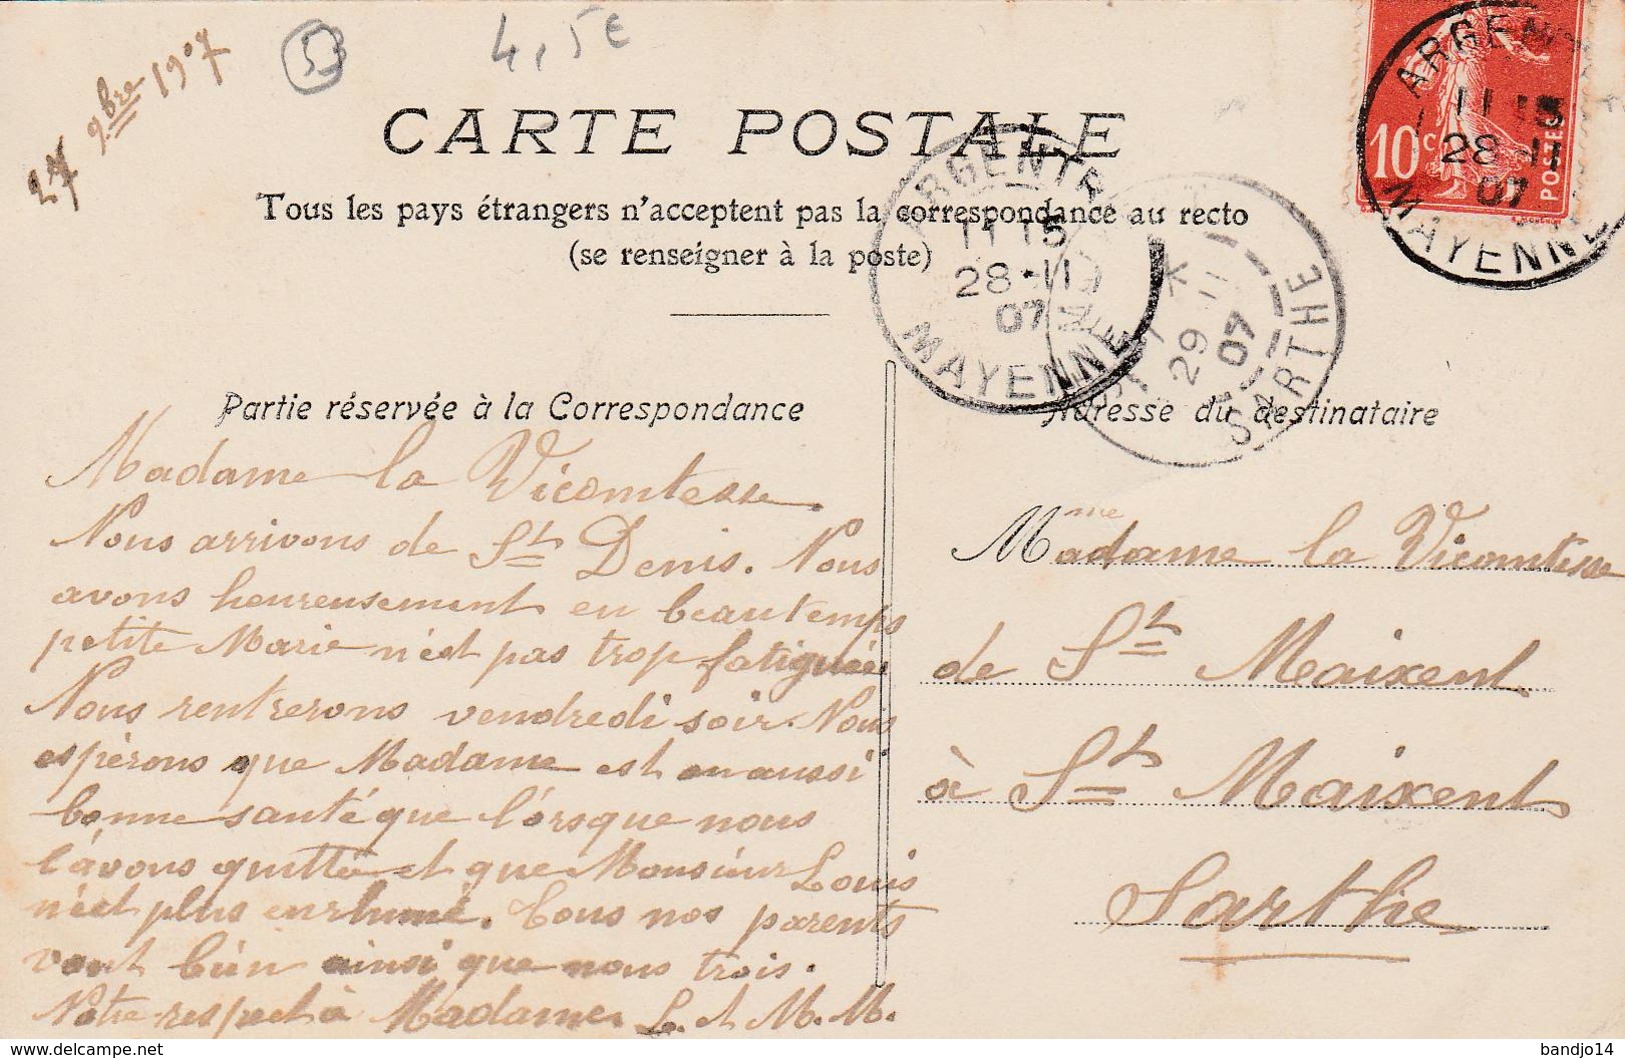 27 9bre 1907
53
4,5€
CARTE POSTALE
Tous les pays étrangers n'acceptent pas la correspondance au recto
(se renseigner à la poste)
10c
POSTES
11 15
28-11
07
MAYENNE
ARGENTRÉ
11 15
28-11
07
MAYENNE
29-11
07
SARTHE
Partie réservée à la Correspondance
Madame la Vicomtesse.
Nous arrivons de St Denis. Nous
avons heureusement eu beau temps
petite Marie n'est pas trop fatiguée
Nous rentrerons vendredi soir. Nous
espérons que Madame est en aussi
bonne santé que l'orsque nous
l'avons quittée et que Monsieur Louis
n'est plus enrhumé. Tous nos parents
vont bien ainsi que nous trois.
Notre respect à Madame. L. et M. M.
Adresse du destinataire
Mme
Madame la Vicomtesse
de St Maixent
à St Maixent
Sarthe
www.delcampe.net
bandjo14